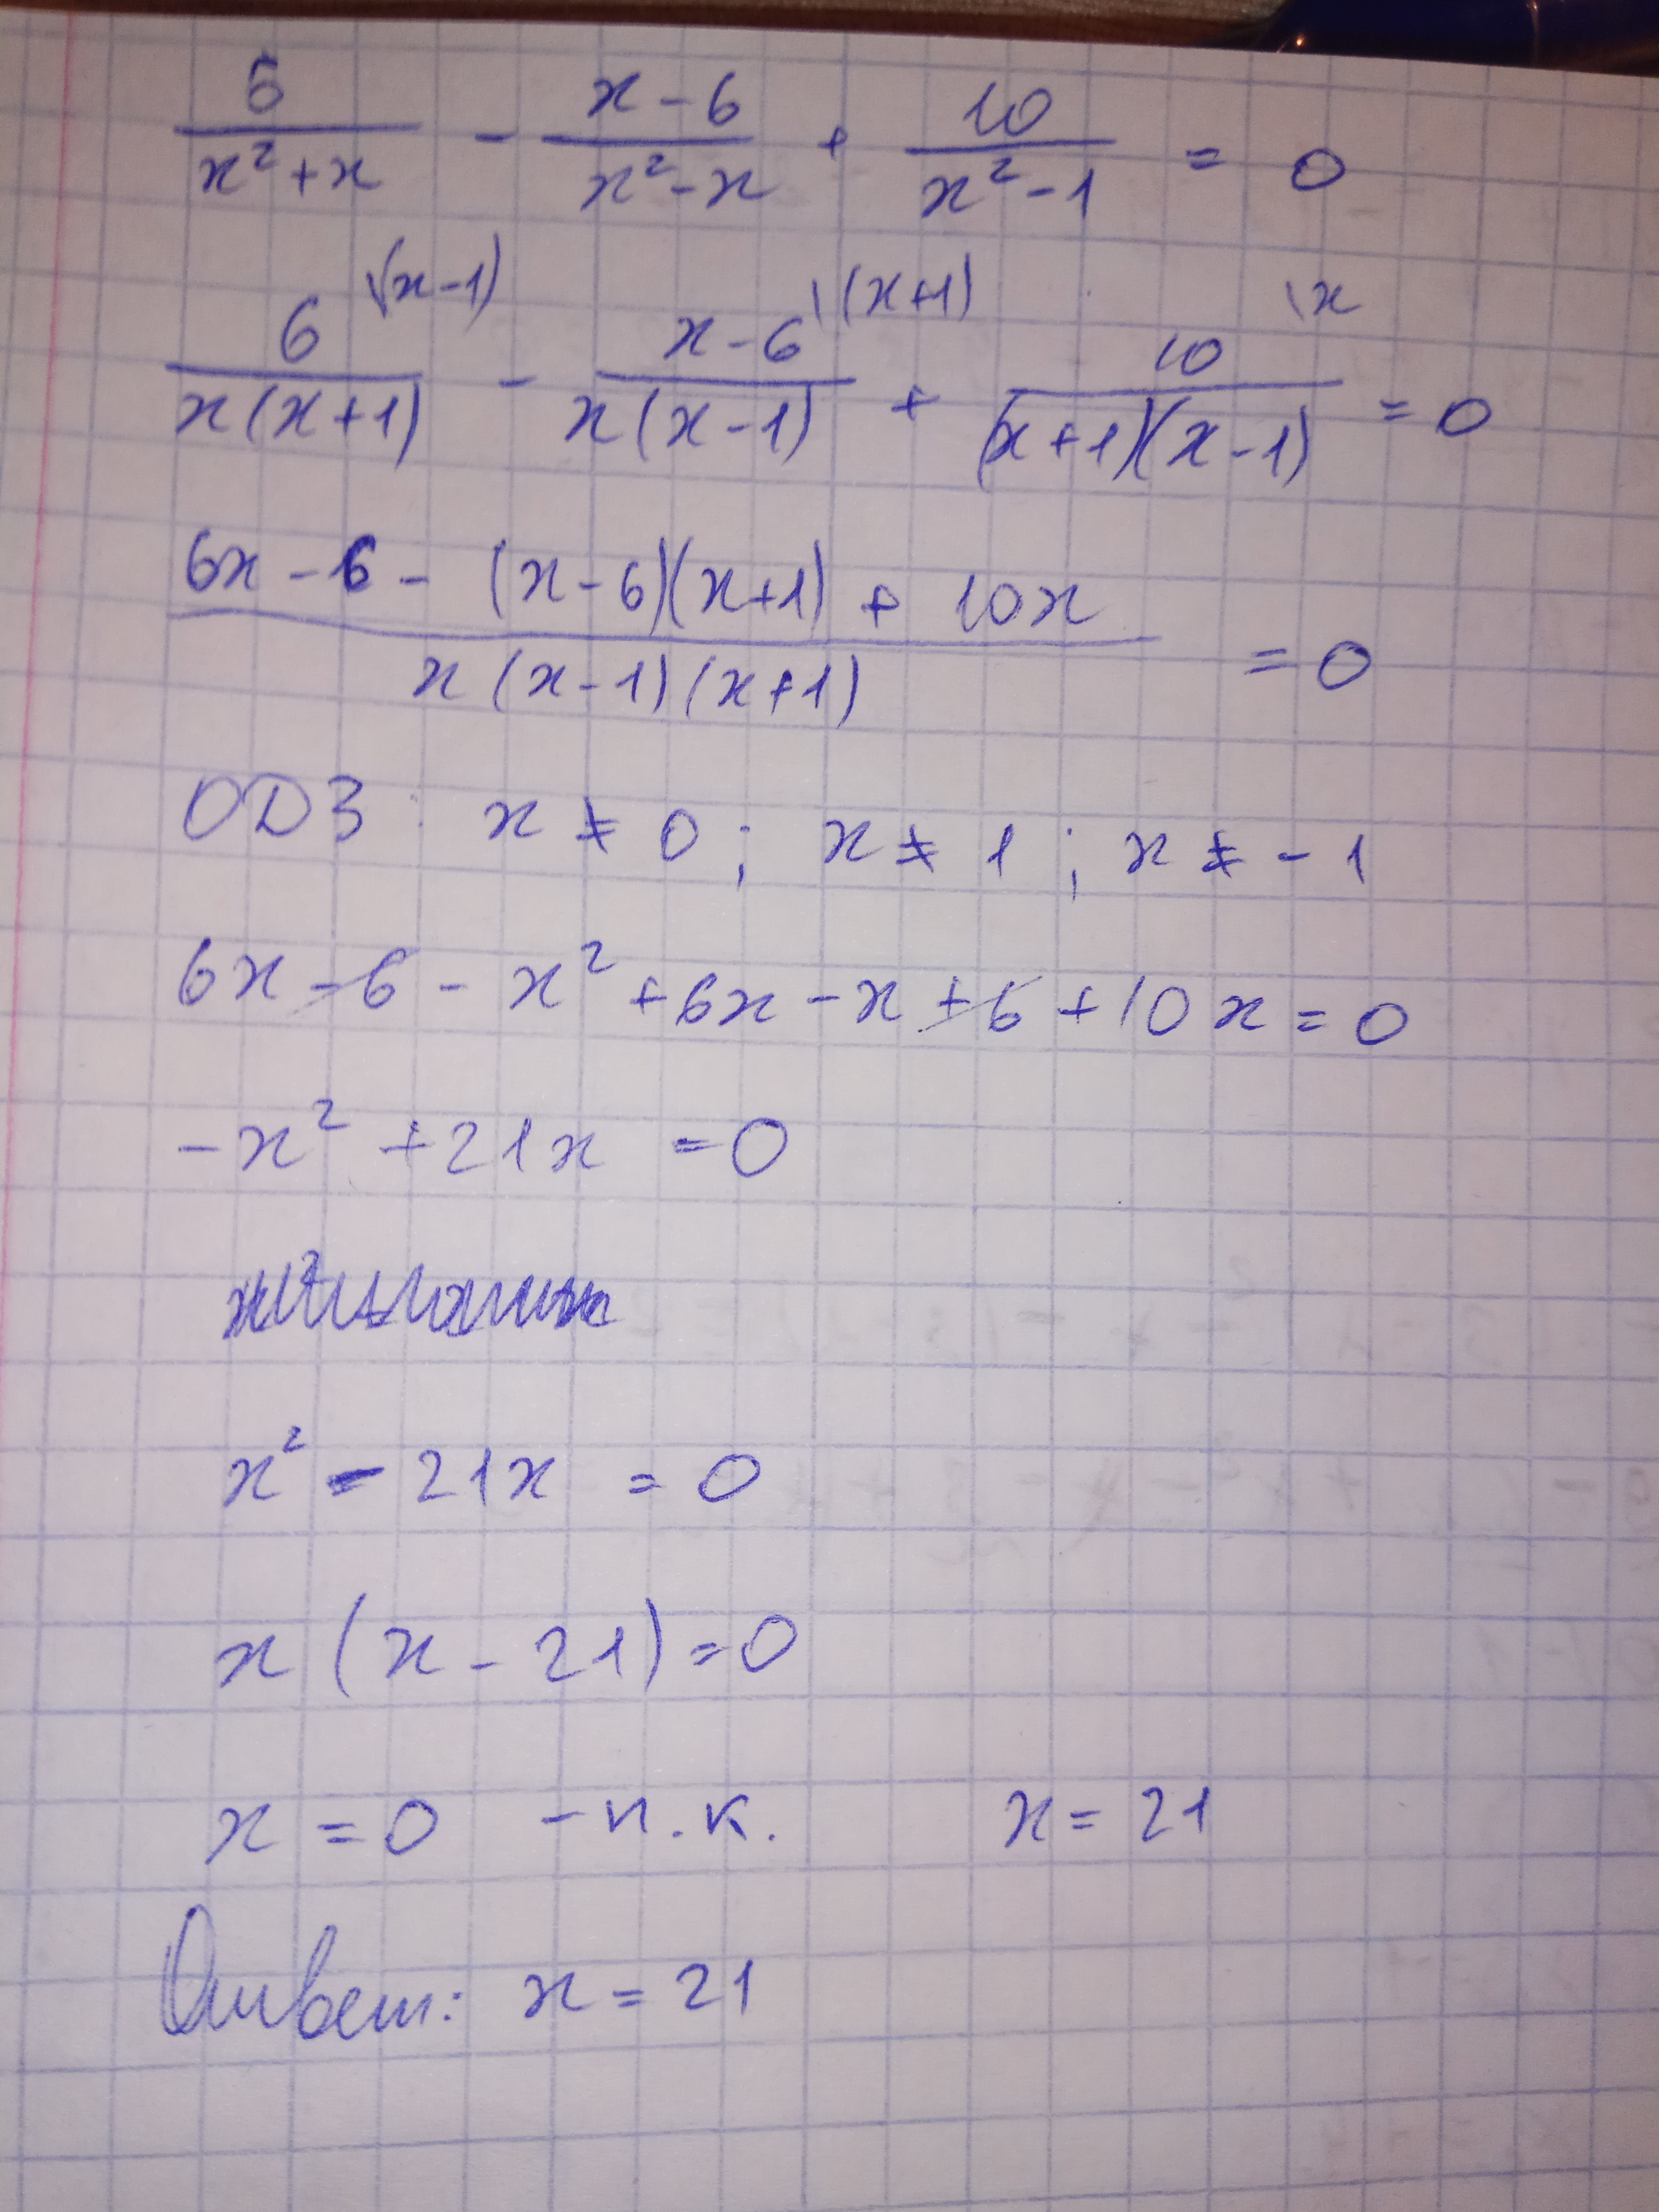 6/(x²+x) - (x-6)/(x²-x) + 10/(x²-1) = 0
6\(x-1)/(x(x+1)) - x-6\(x+1)/(x(x-1)) + 10\x/((x+1)(x-1)) = 0
(6x-6-(x-6)(x+1)+10x)/(x(x-1)(x+1)) = 0
ОДЗ: x ≠ 0; x ≠ 1; x ≠ -1
6x-6-x²+6x-x+6+10x=0
-x²+21x=0
x²-21x=0
x(x-21)=0
x=0 -п.к. x=21
Ответ: x=21